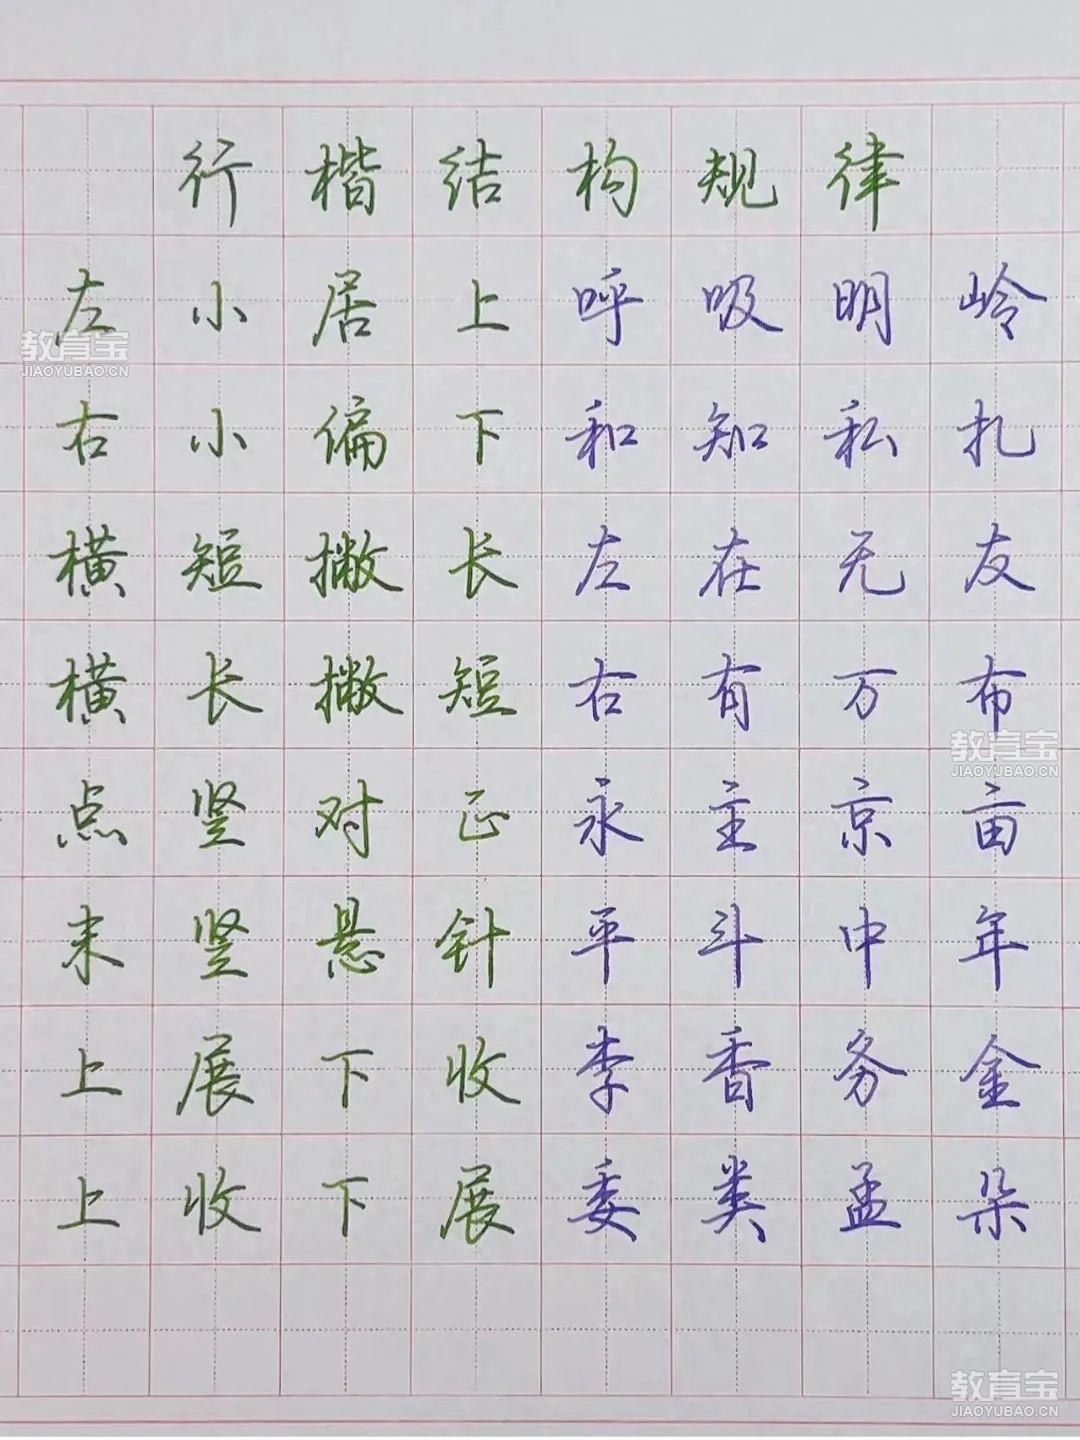 行楷结构规律
左小居上呼吸明岭
右小偏下和知私扎
横短撇长左在无友
横长撇短右有万布
点竖对正永主京亩
末竖悬针平斗中年
上展下收李香务金
上收下展委类孟朵
教育宝
JIAOYUBAO.CN
教育宝
JIAOYUBAO.CN
教育宝
JIAOYUBAO.CN